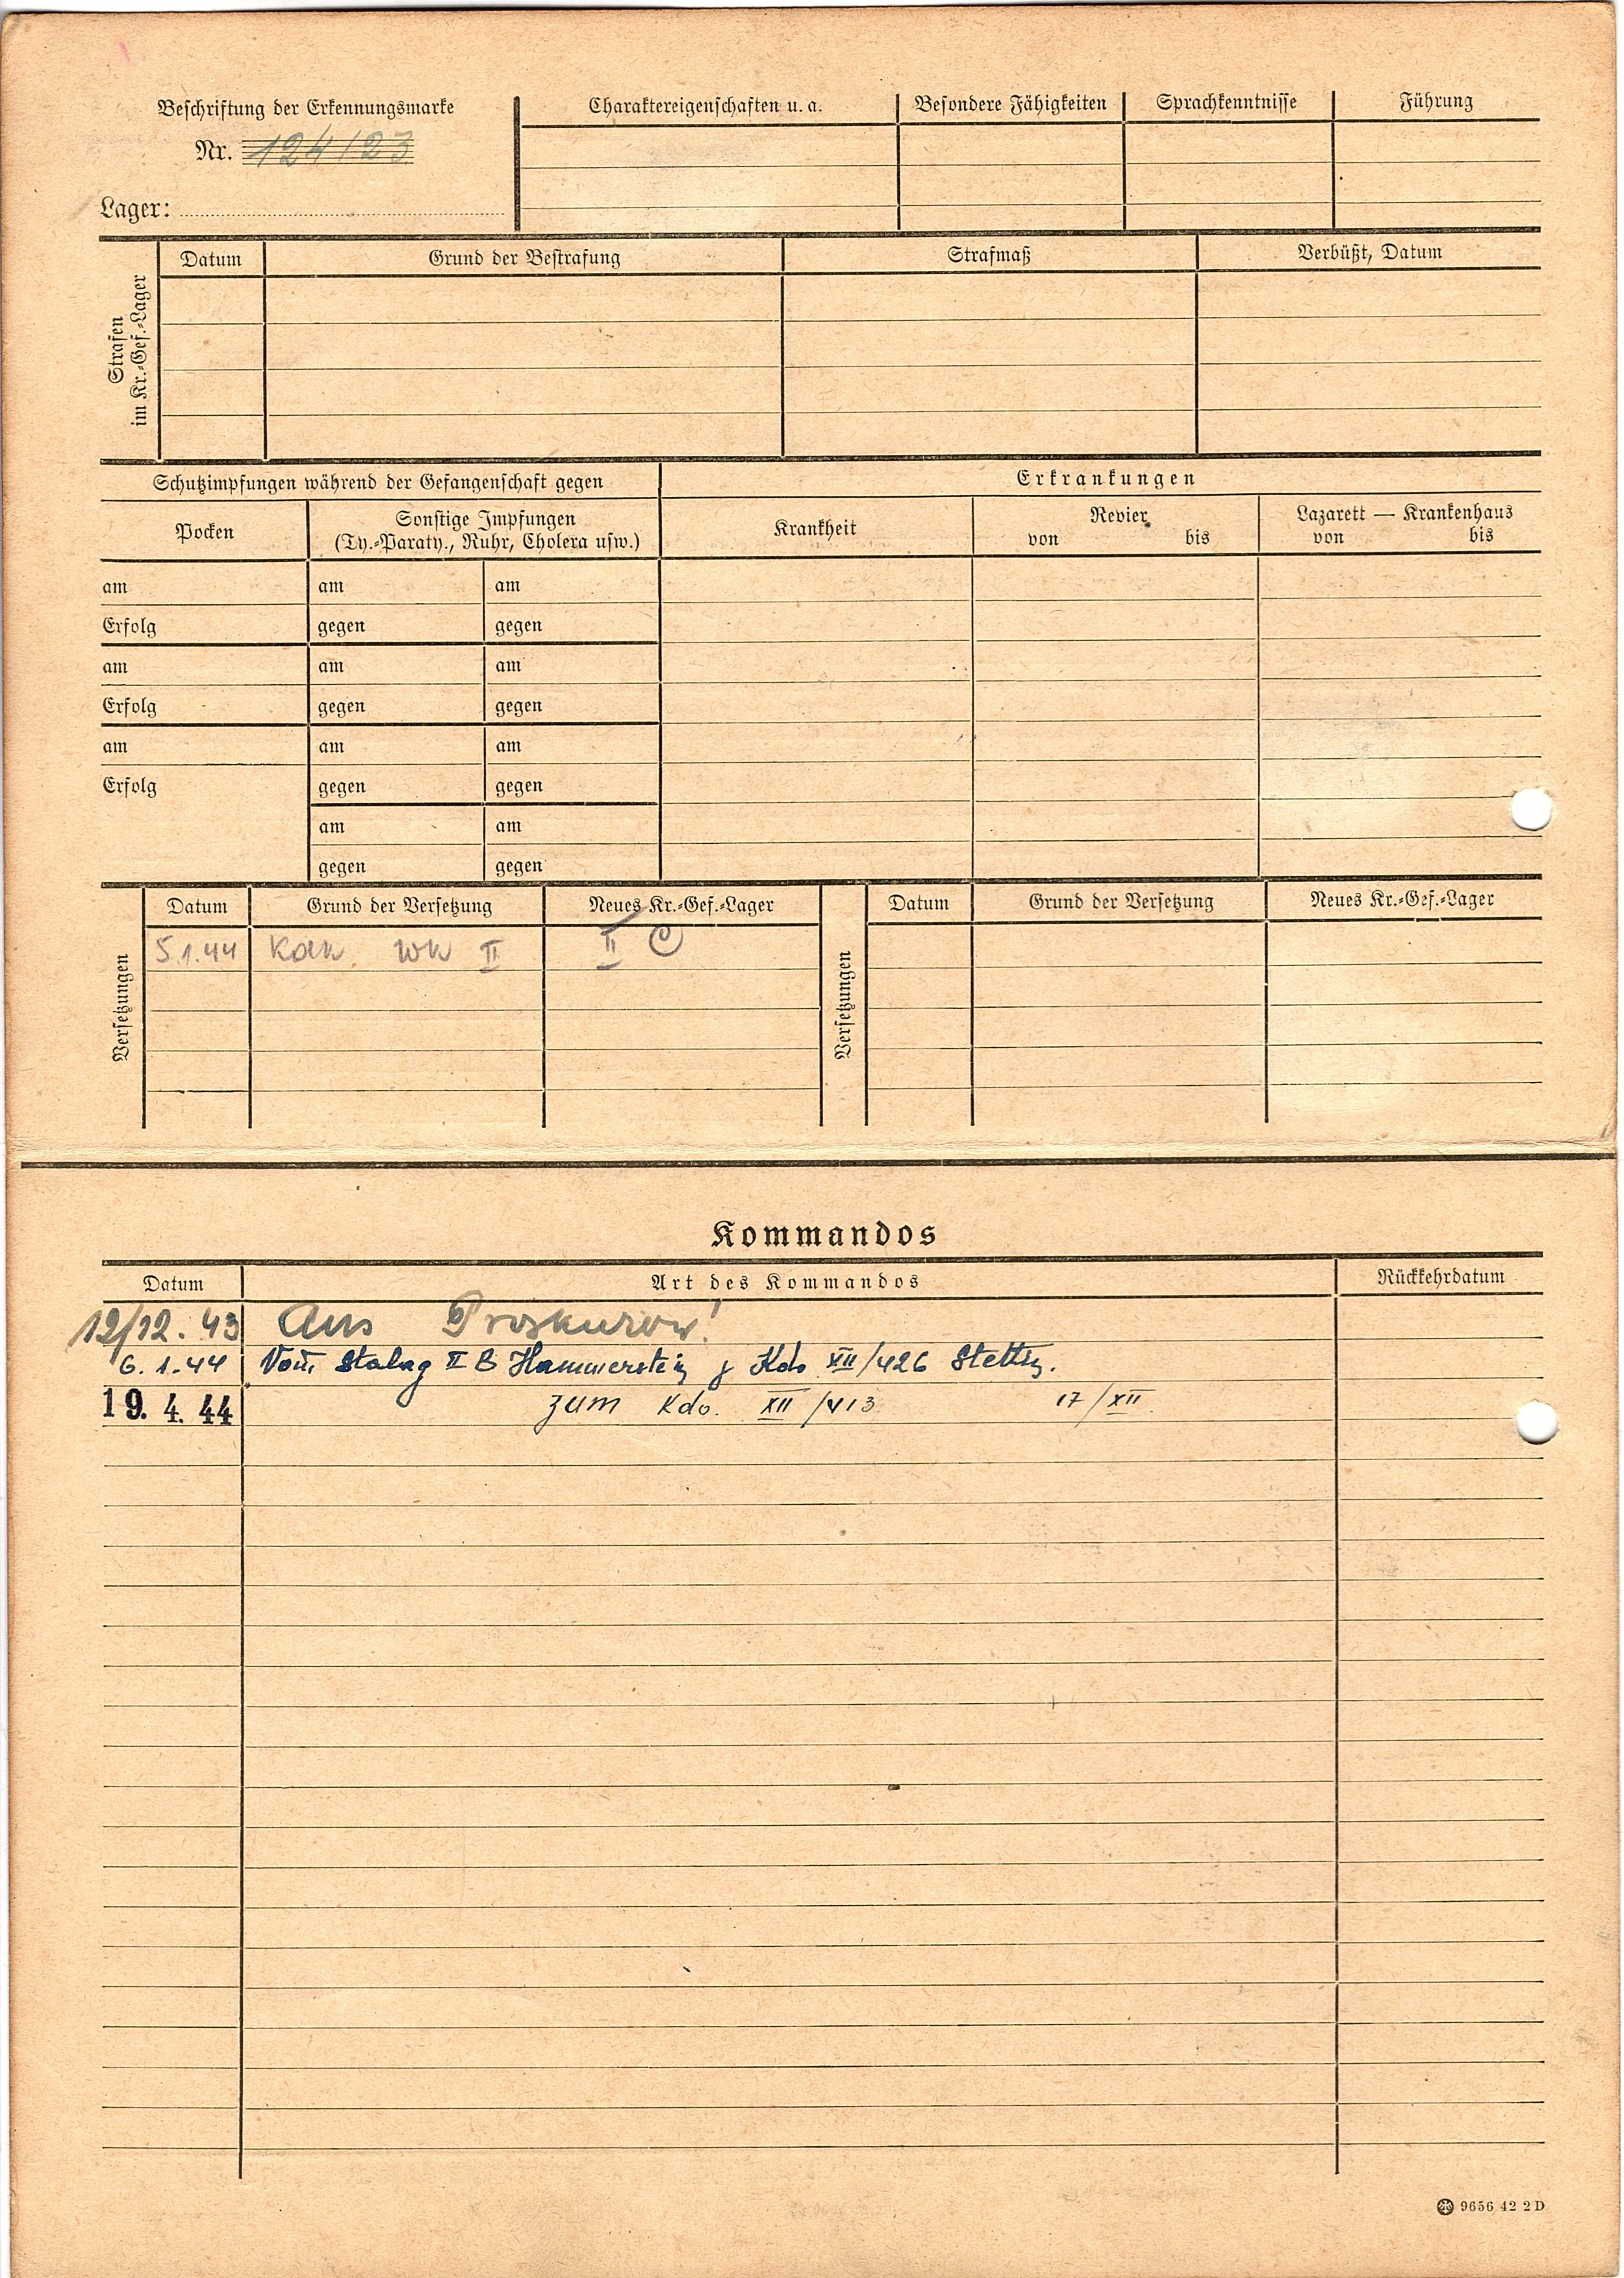 Beschriftung der Erkennungsmarke
Nr. 124123
Lager:
Charaktereigenschaften u. a.
Besondere Fähigkeiten
Sprachkenntnisse
Führung
Strafen
im Kr.-Gef.-Lager
Datum
Grund der Bestrafung
Strafmaß
Verbüßt, Datum
Schutzimpfungen während der Gefangenschaft gegen
Erkrankungen
Pocken
Sonstige Impfungen
(Ty.-Paraty., Ruhr, Cholera usw.)
Krankheit
Revier
von bis
Lazarett — Krankenhaus
von bis
am am am
Erfolg gegen gegen
am am am
Erfolg gegen gegen
am am am
Erfolg gegen gegen
am am
gegen gegen
Versetzungen
Datum Grund der Versetzung Neues Kr.-Gef.-Lager
5.1.44 II II C
Versetzungen
Datum Grund der Versetzung Neues Kr.-Gef.-Lager
Kommandos
Datum Art des Kommandos Rückkehrdatum
12/12. 43 Aus Proskurow!
6. 1. 44 Vom Stalag II B Hammerstein z Kdo XII/426 Stettin.
19. 4. 44 zum Kdo. XII/413 17/XII
9656 42 2 D